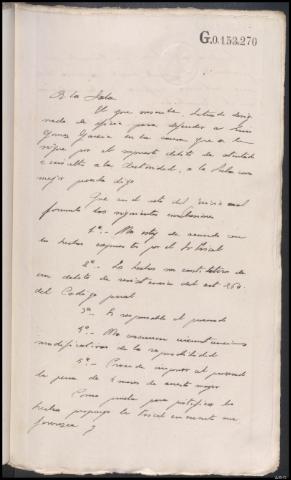 G.0.153.270
A la Sala
El que suscribe, letrado desig
nado de oficio para defender a Luis
Gomez Garcia en la causa que se le
sigue por el supuesto delito de atentado
a la Autoridad, a la Sala con
mejor digo
Que en el acto del juicio oral
formula las siguientes conclusiones
1ª.- Me estoy de acuerdo con
los hechos expuestos por el Sr Fiscal
2ª.- Los hechos son constitutivos de
un delito de resistencia del art 260
del Codigo penal
3ª.- Es responsable el procesado
4ª.- No concurren circunstancias
modificativas de la responsabilidad
5ª.- Procede imponer al procesado
la pena de 2 meses de arresto mayor
Como prueba para justificar los
hechos propongo la Fiscal en cuanto me
favorezca